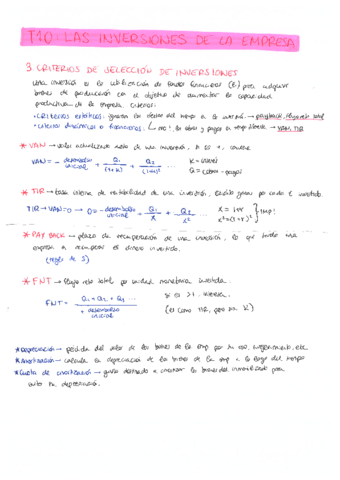 T10: LAS INVERSIONES DE LA EMPRESA
3 CRITERIOS DE SELECCIÓN DE INVERSIONES
una inversión es la utilización de fondos financieros (€) para adquirir
bienes de producción con el objetivo de aumentar la capacidad
productiva de la empresa. Criterios:
• criterios estáticos: ignoran los del tiempo a la → payback,
• criterios dinámicos o financieros: los cobros y pagos → VAN, TIR
* VAN → valor actualizado neto de una inversión, si es +, conviene
VAN = - desembolso inicial + Q1/(1+K) + Q2/(1+K)² ... K = interés
Q = cobros - pagos
* TIR → tasa interna de rentabilidad de una inversión, por cada € invertido
TIR → VAN=0 → 0 = - desembolso inicial + Q1/X + Q2/X² ... X = 1+r
X² = (1+r)² } imp!
* PAY BACK → plazo de recuperación de una inversión, lo que tarda una
empresa en recuperar el dinero invertido.
(regla de 3)
* FNT → flujo neto total por unidad monetaria invertida.
FNT = Q1 + Q2 + Q3 ... / + desembolso inicial si es >1, interesa
(es como TIR, pero sin K)
* Depreciación → pérdida del valor de los bienes de la emp por su uso, etc
* Amortización → calcula la depreciación de los bienes de la emp a lo largo del tiempo
* Cuota de amortización → los bienes del inmovilizado para
evitar su depreciación.